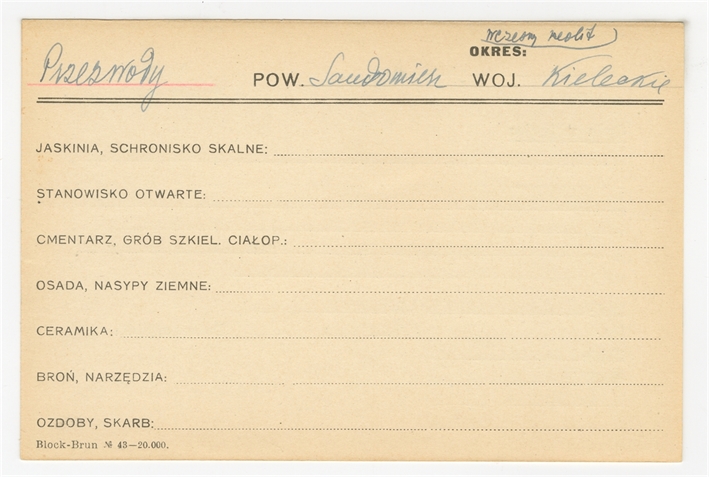 wczesny neolit
OKRES:
Przezwody POW. Sandomierz WOJ. Kieleckie
JASKINIA, SCHRONISKO SKALNE:
STANOWISKO OTWARTE:
CMENTARZ, GRÓB SZKIEL. CIAŁOP.:
OSADA, NASYPY ZIEMNE:
CERAMIKA:
BROŃ, NARZĘDZIA:
OZDOBY, SKARB:
Block-Brun № 43—20.000.